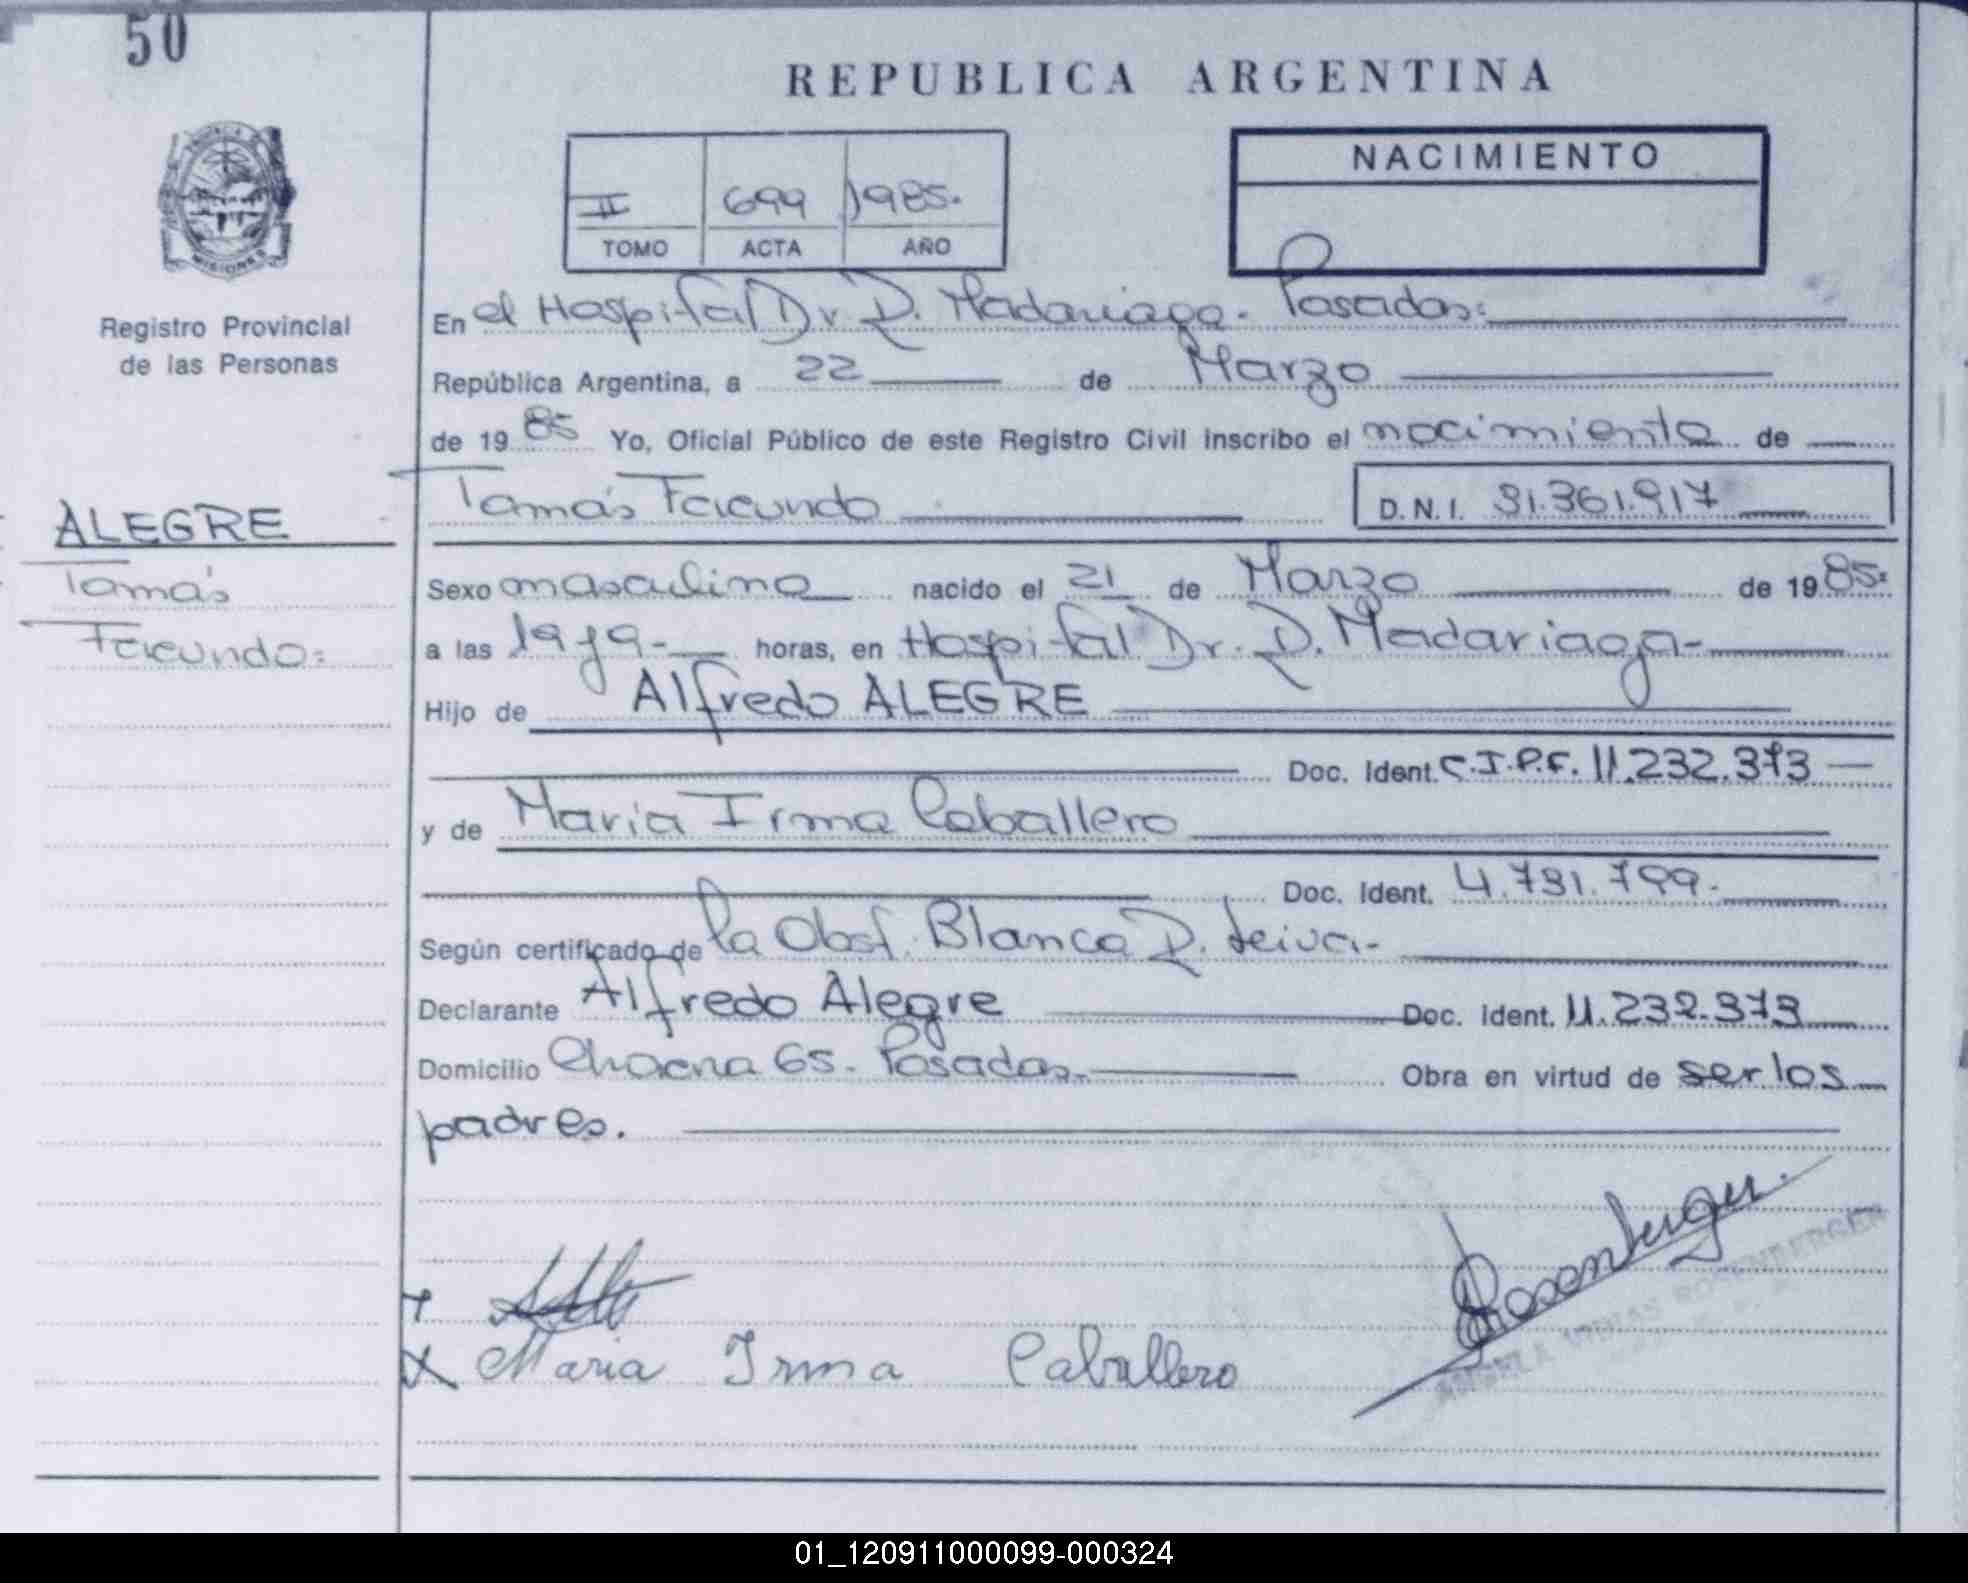 50
REPUBLICA ARGENTINA
MISIONES
Registro Provincial
de las Personas
II 699 1985.
TOMO ACTA AÑO
NACIMIENTO
En el Hospital Dr. R. Madariaga. Posadas.
República Argentina, a 22 de Marzo
de 1985 Yo, Oficial Público de este Registro Civil inscribo el nacimiento de
Tomás Facundo D.N.I. 31.361.917
ALEGRE
Tomás
Facundo.
Sexo masculino nacido el 21 de Marzo de 1985.
a las 19 y 9 horas, en Hospital Dr. R. Madariaga
Hijo de Alfredo ALEGRE
Doc. Ident. C.I.P.F. 11.232.373
y de Maria Irma Caballero
Doc. Ident. 4.731.799.
Según certificado de la Obst. Blanca R. Leiva
Declarante Alfredo Alegre Doc. Ident. 11.232.373
Domicilio Chacra 65. Posadas. Obra en virtud de ser los
padres.
Rosenberger
ROSENBERGER
Maria Irma Caballero
01_120911000099-000324